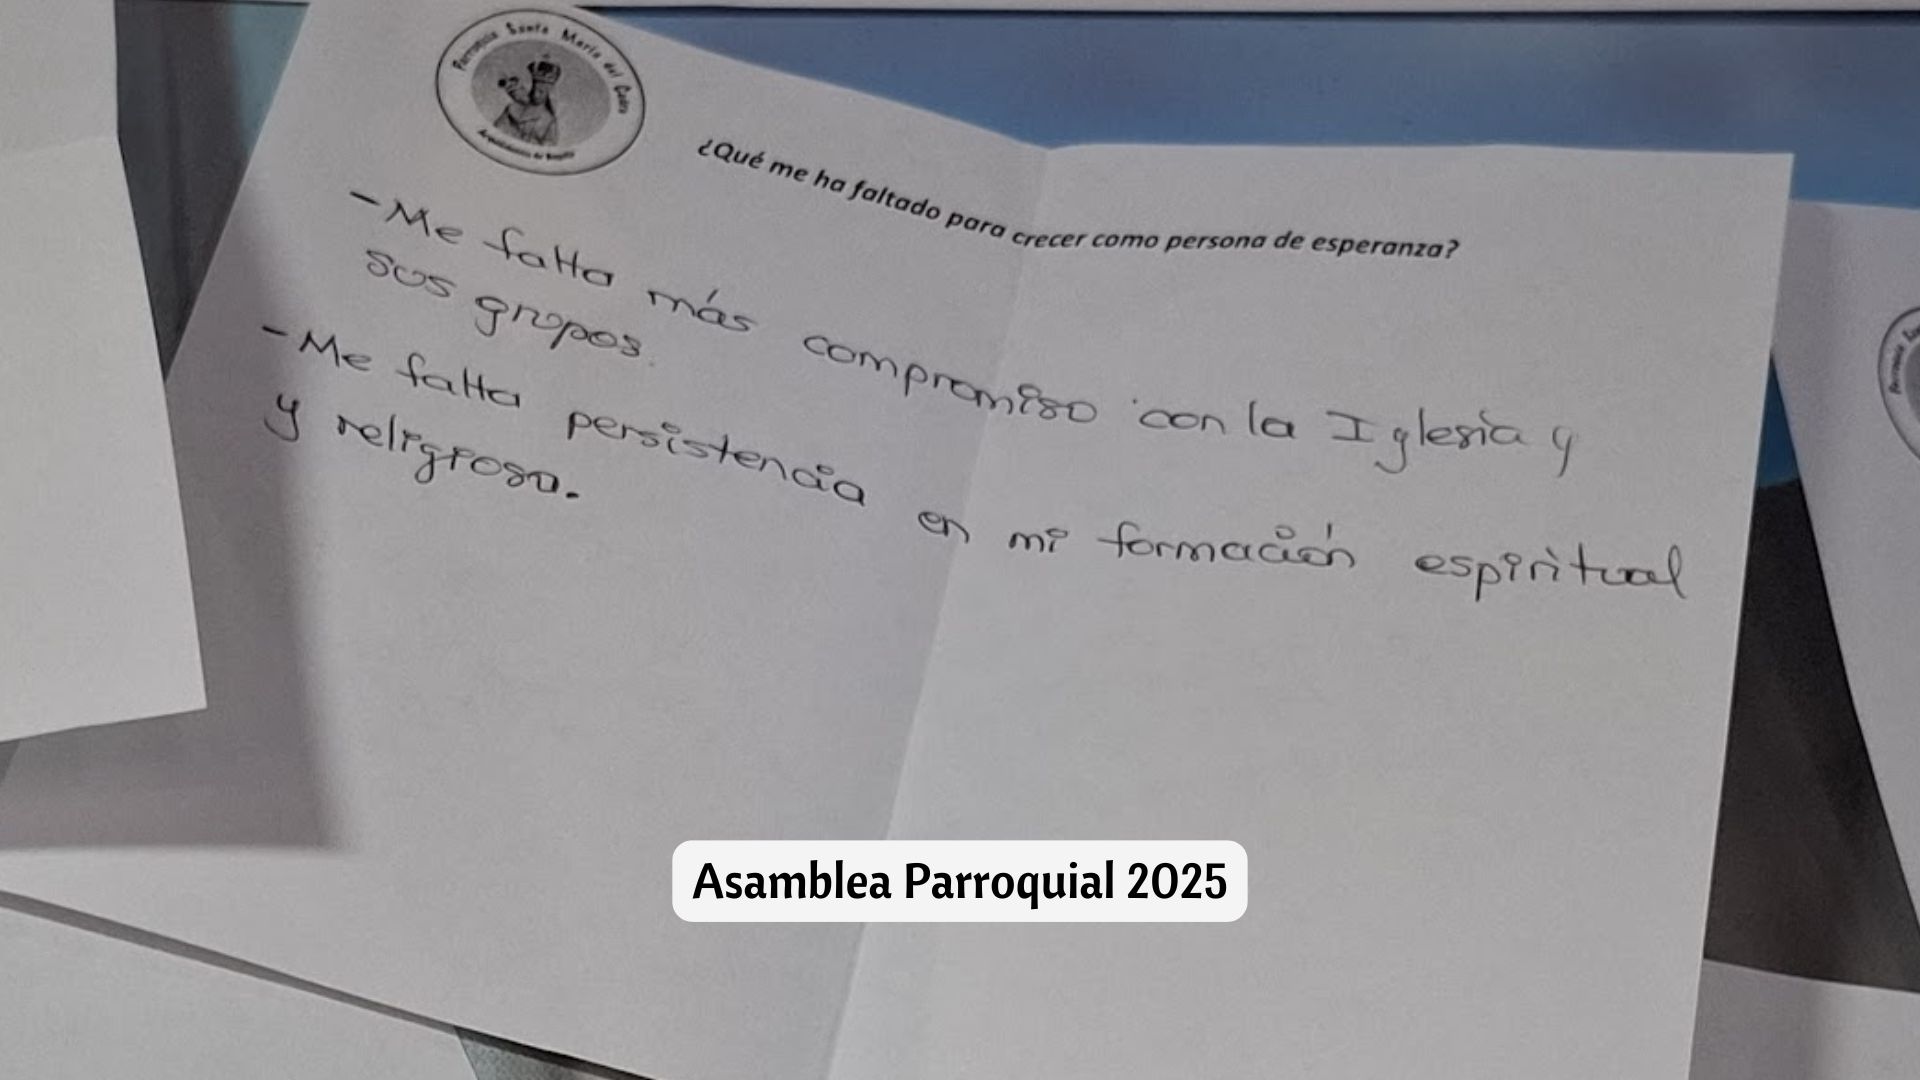 Parroquia Santa María del Cedro
Arquidiócesis de Bogotá
¿Qué me ha faltado para crecer como persona de esperanza?
- Me falta más compromiso con la Iglesia y
sus grupos.
- Me falta persistencia en mi formación espiritual
y religiosa.
Asamblea Parroquial 2025